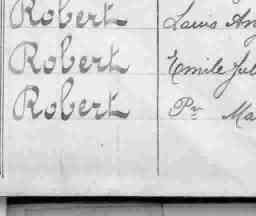 Robert Louis An
Robert Emile Jul
Robert Pre Ma